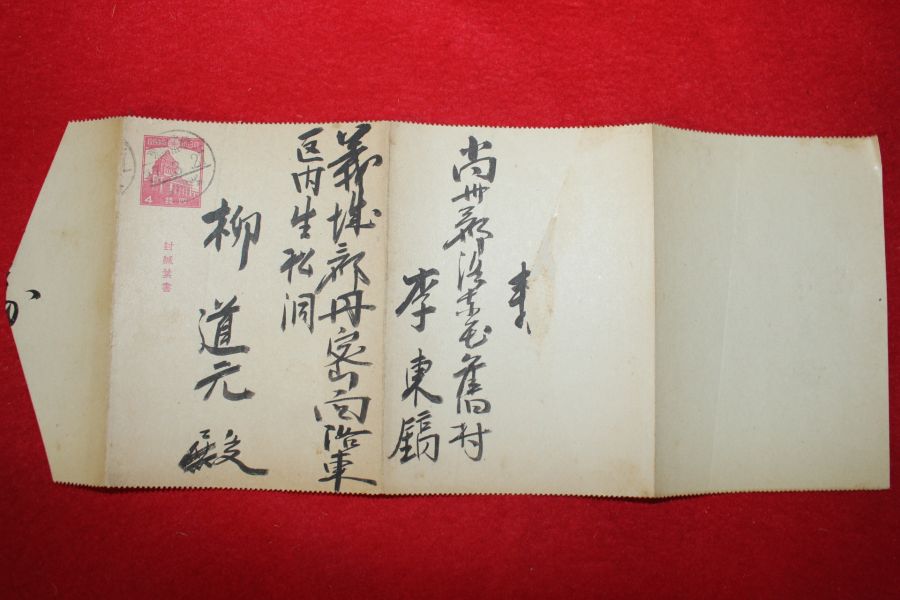 義城郡丹密面洛東
区内生松洞
柳道元殿
封緘葉書
4
尚州郡洛東面舊村
李東鎬